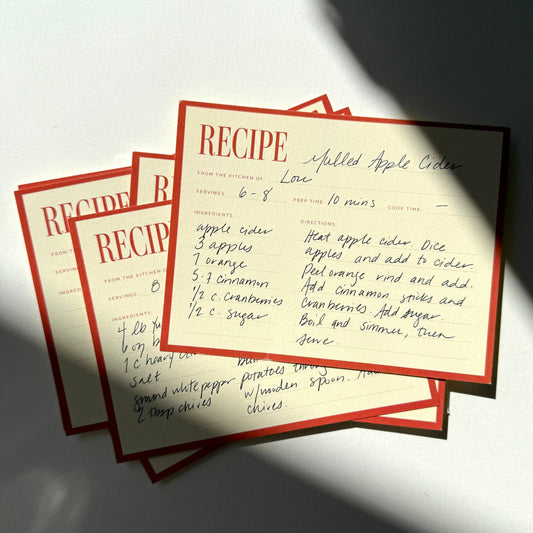 RECIPE
Mulled Apple Cider
FROM THE KITCHEN OF: Lori
SERVINGS: 6-8 PREP TIME: 10 mins COOK TIME: —
INGREDIENTS:
apple cider
3 apples
1 orange
5-7 cinnamon
1/2 c. cranberries
1/2 c. sugar
DIRECTIONS:
Heat apple cider. Dice
apples and add to cider.
Peel orange rind and add.
Add cinnamon sticks and
cranberries. Add sugar.
Boil and simmer, then
serve.
RECIPE
FROM THE KITCHEN OF
SERVINGS: 8
INGREDIENTS:
4 lb Yu
6 oz b
1 c heavy
salt
ground white pepper
2 tbsp chives
potatoes throu
w/wooden spoon.
chives.
RECI
FROM TH
SERVING
INGREDIE
RE